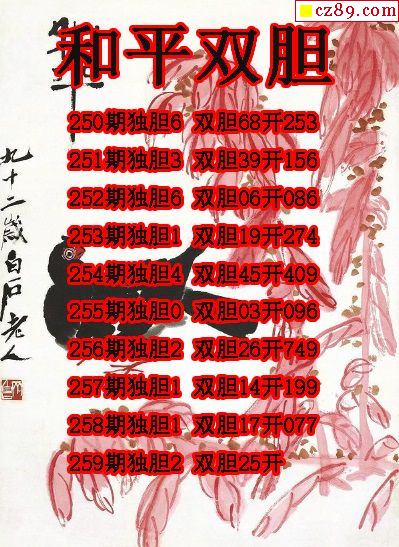 cz89.com
和平双胆
250期独胆6 双胆68开253
251期独胆3 双胆39开156
252期独胆6 双胆06开086
253期独胆1 双胆19开274
254期独胆4 双胆45开409
255期独胆0 双胆03开096
256期独胆2 双胆26开749
257期独胆1 双胆14开199
258期独胆1 双胆17开077
259期独胆2 双胆25开
九十二歲白石老人